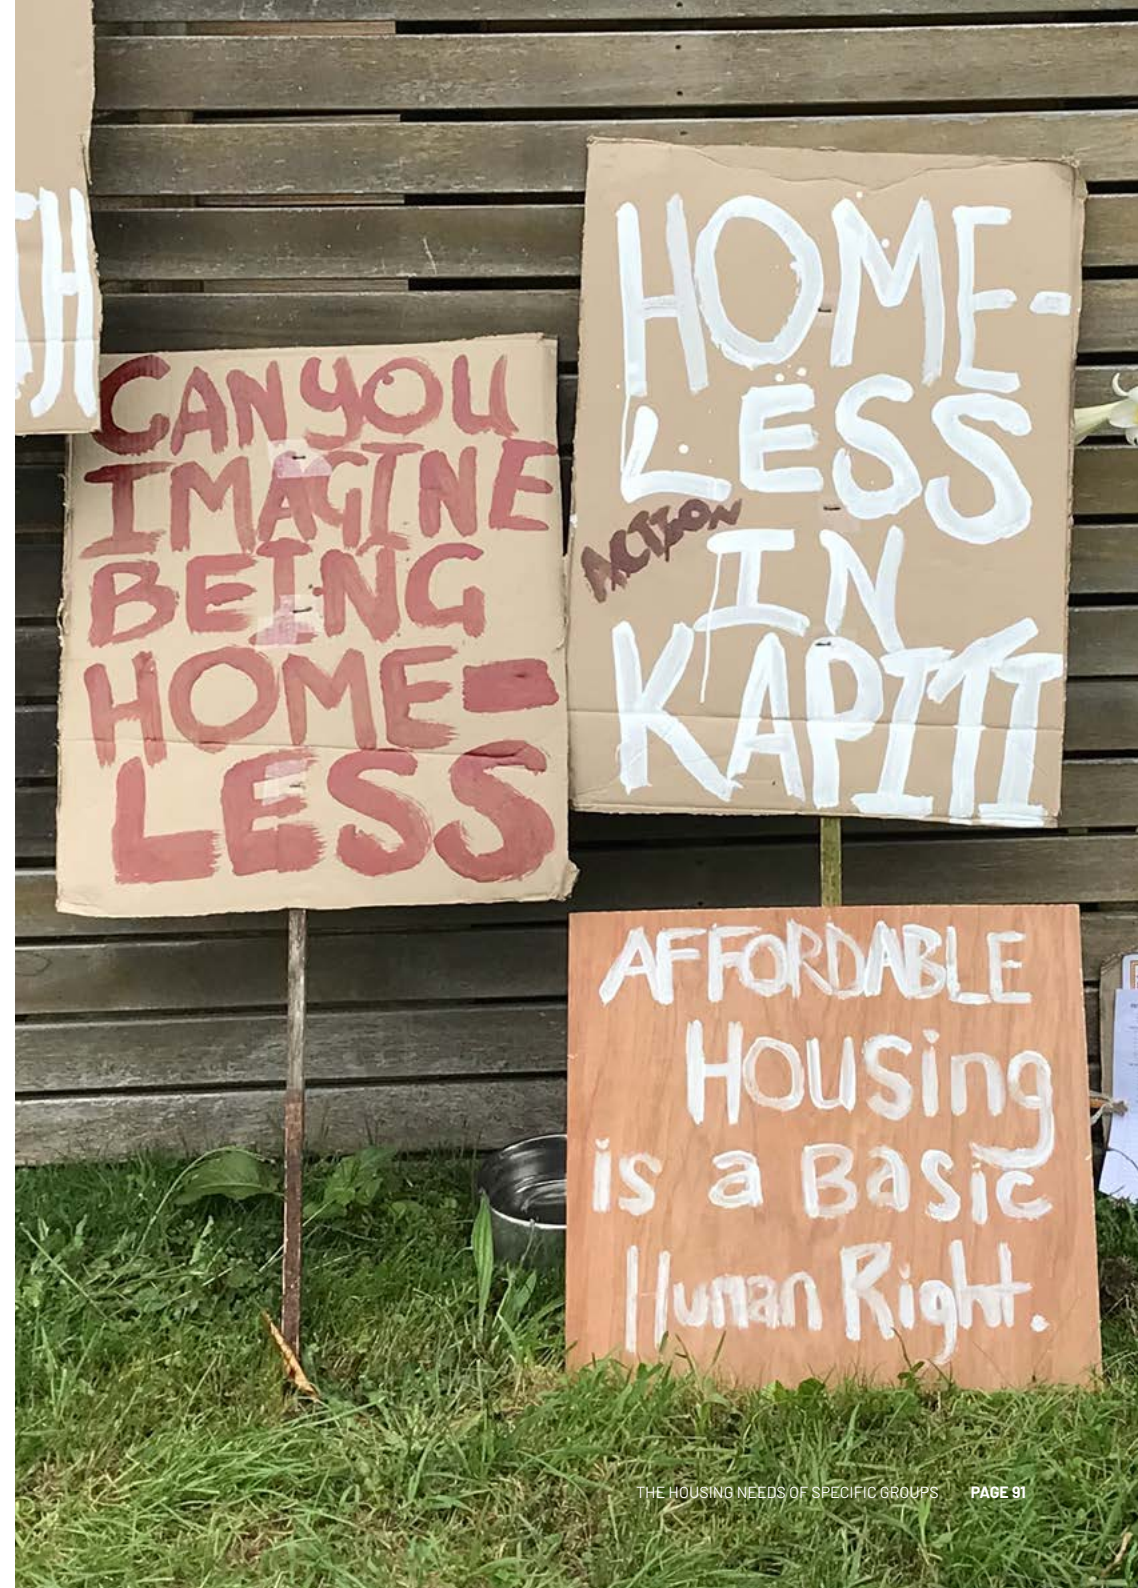 CAN YOU
IMAGINE
BEING
HOME-
LESS
HOME-
LESS
ACTION
IN
KAPITI
AFFORDABLE
Housing
is a Basic
Human Right.
THE HOUSING NEEDS OF SPECIFIC GROUPS PAGE 91